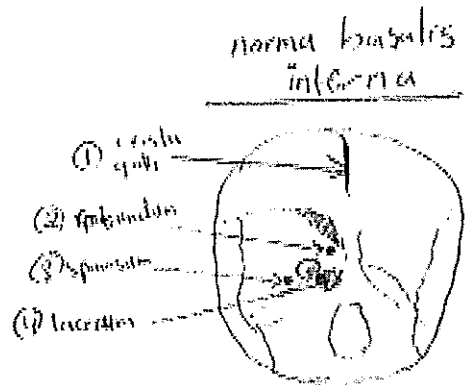 norma basalis
interna
① crista
galli
② rotundum
③ spinosum
④ lacerum